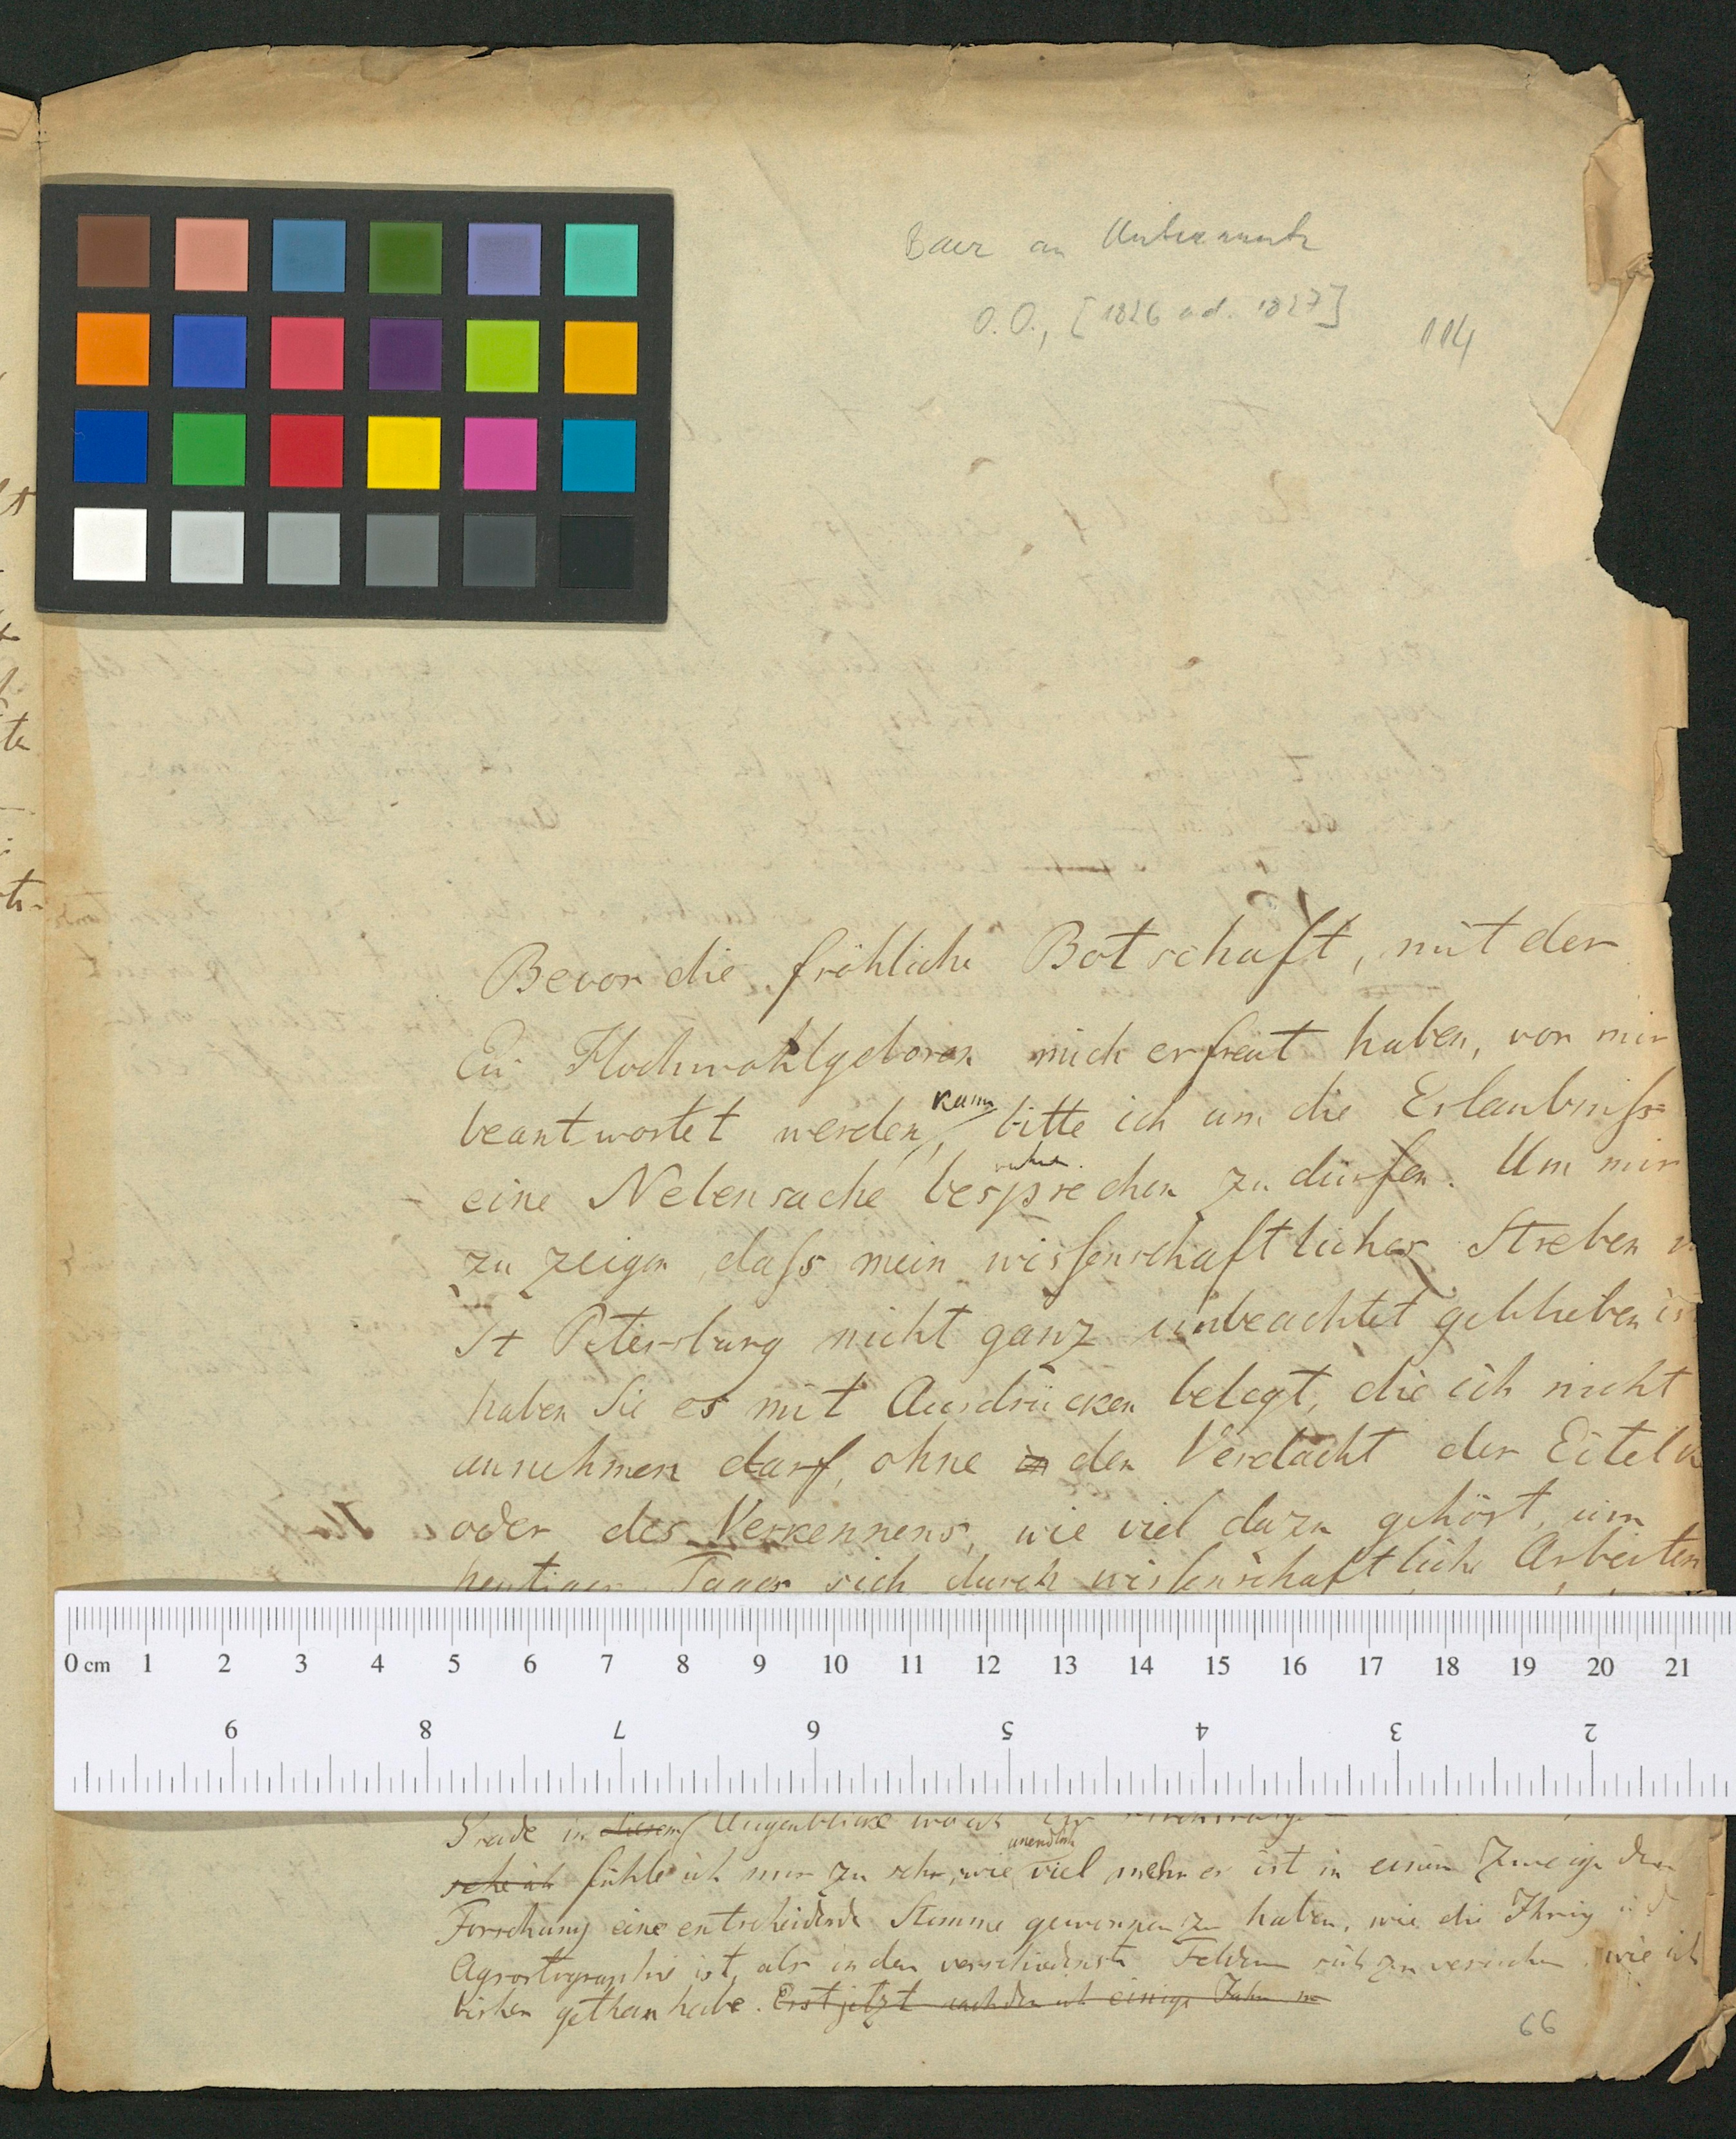 Baer an Unbekannt
O. O., [1826 od. 1827]
114
Bevor die fröhliche Botschaft, mit der
Eu Hochwohlgeboren mich erfreut haben, von mir
beantwortet werden kann, bitte ich um die Erlaubniss
eine Nebensache besprechen zu dürfen. Um mir
zu zeigen dass mein wissenschaftliches Streben
St Petersburg nicht ganz unbeachtet geblieben is
haben Sie es mit Ausdrücken belegt, die ich nicht
annehmen darf, ohne in den Verdacht der Eitelk
oder des Verkennens, wie viel dazu gehört, um
heutigen Tages sich durch wissenschaftliche Arbeiten
0 cm 1 2 3 4 5 6 7 8 9 10 11 12 13 14 15 16 17 18 19 20 21
9 8 7 6 5 4 3 2
Grade in diesem Augenblicke wo ich
sehe ich fühle ich nur zu sehr, wie unendlich viel mehr es ist in einem Zweige der
Forschung eine entscheidende Stimme gewonnen zu haben, wie die Ihrig in d
Agrostographie ist, als in den verschiedensten Feldern sich zu versuchen, wie ich
bisher gethan habe. Erst jetzt nachdem ich einige Jahre
66